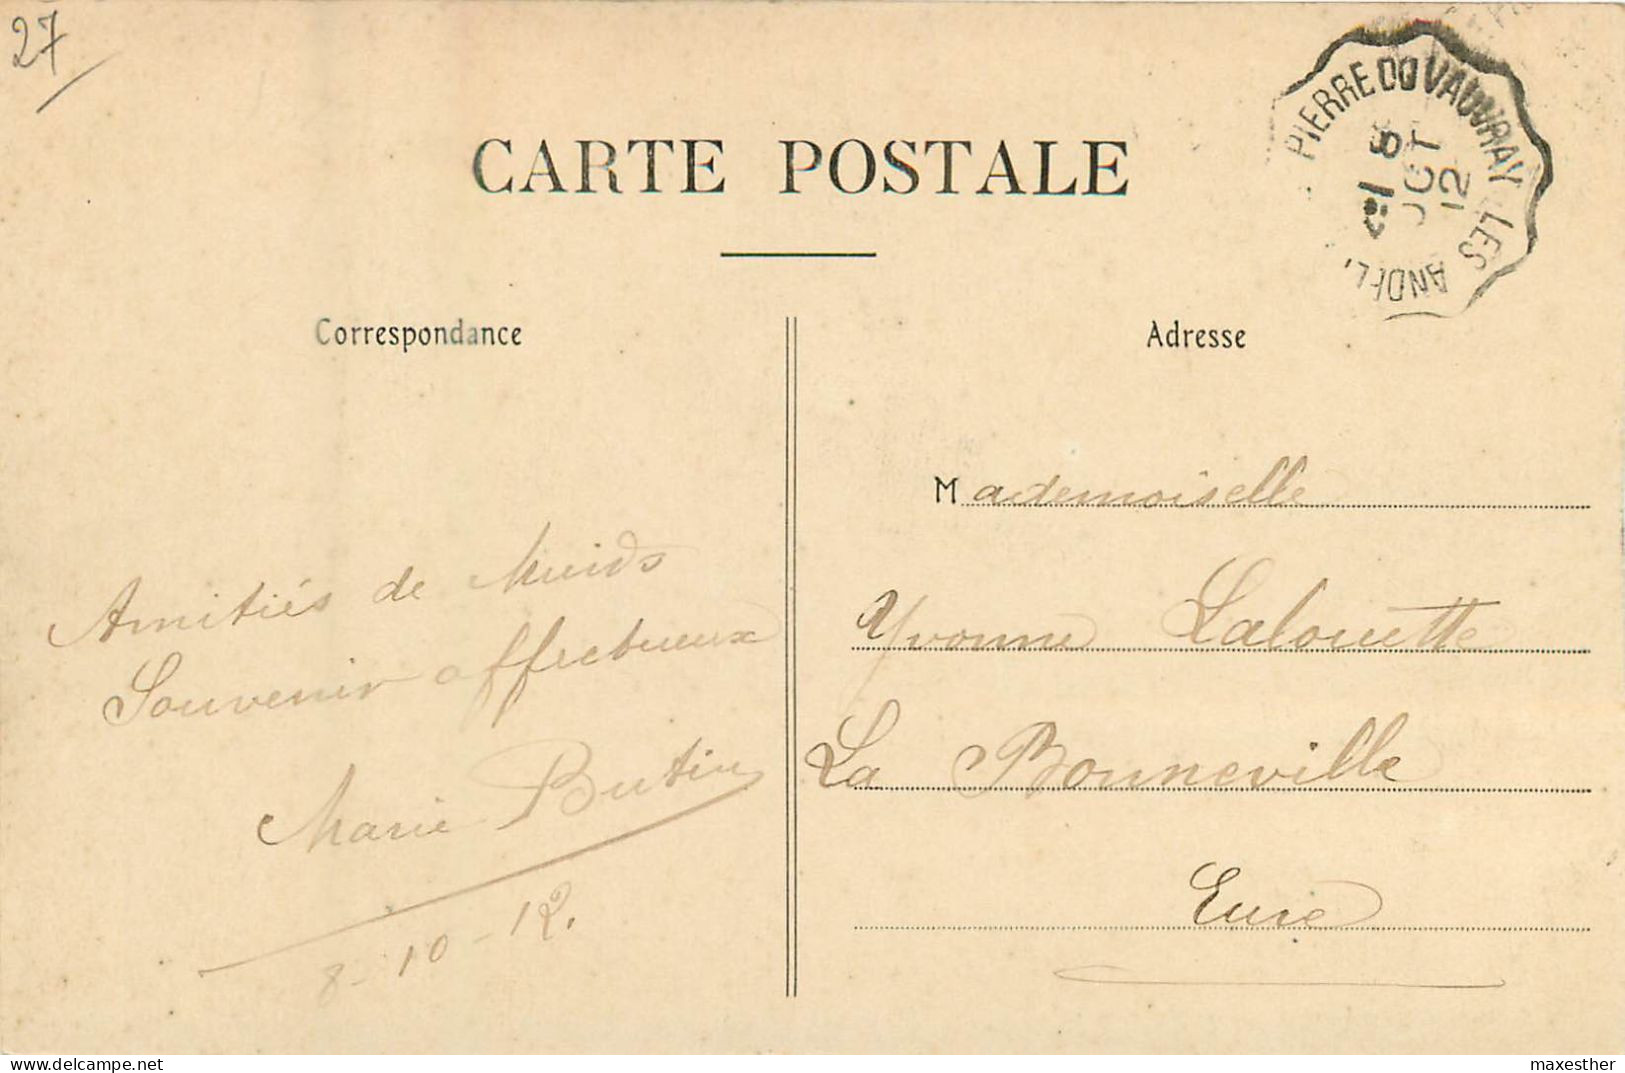 27
CARTE POSTALE
PIERRE DU VAUVRAY
LES ANDEL.
8
OCT
12
Correspondance
Adresse
Amitiés de Muids
Souvenir affectueux
Marie Butin
8-10-12.
Mademoiselle
Yvonne Lalouette
La Bonneville
Eure
delcampe.net
maxesther